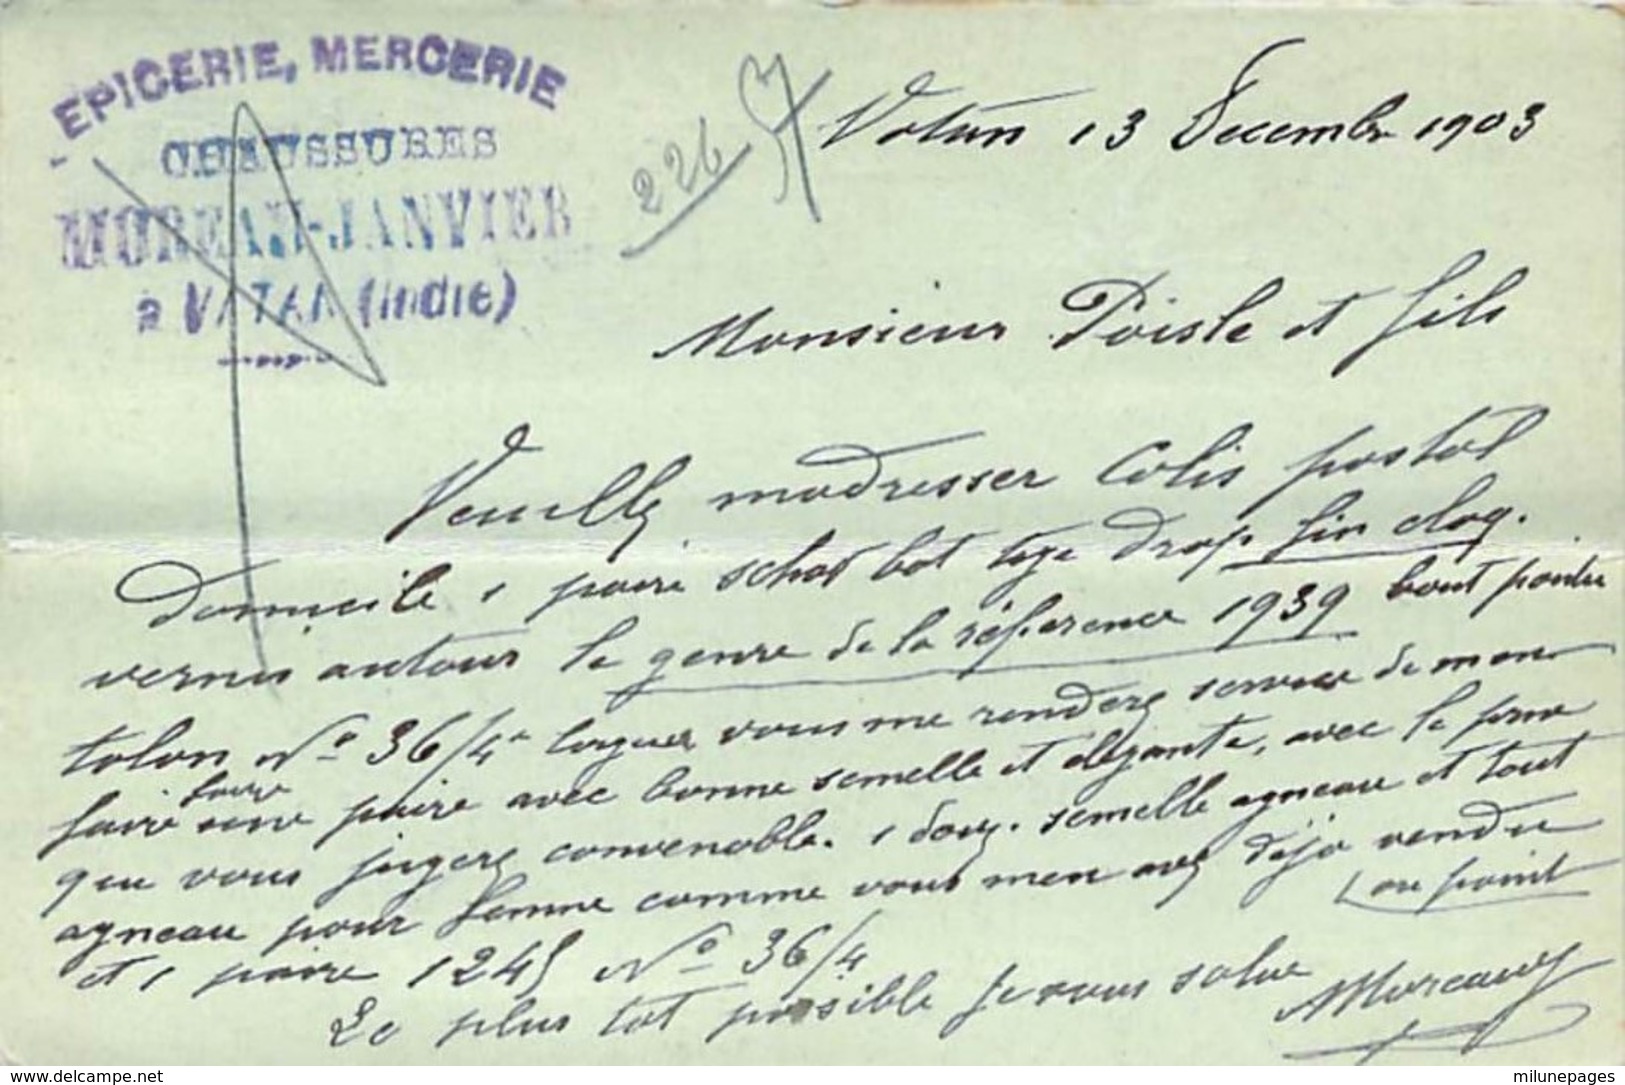 EPICERIE, MERCERIE
CHAUSSURES
MOREAU-JANVIER
à VATAN (Indre)
226
Vatan 13 Decembre 1903
Monsieur Poisle et fils
Veuillez madresser Colis postal
domicile 1 paire bot tige drap fin claq.
vernis autour le genre de la référence 1939 bout pointu
talon No 36/4 vous me rendez service de men
faire faire une paire avec bonne semelle et élégante, avec le prix
que vous jugerez convenable. 1 douz. semelle agneau et tout
agneau pour femme comme vous men avez déja vendu
au point
et 1 paire 1245 No 36/4
Le plus tot possible Je vous salue
Moreau
delcampe.net
milunepages